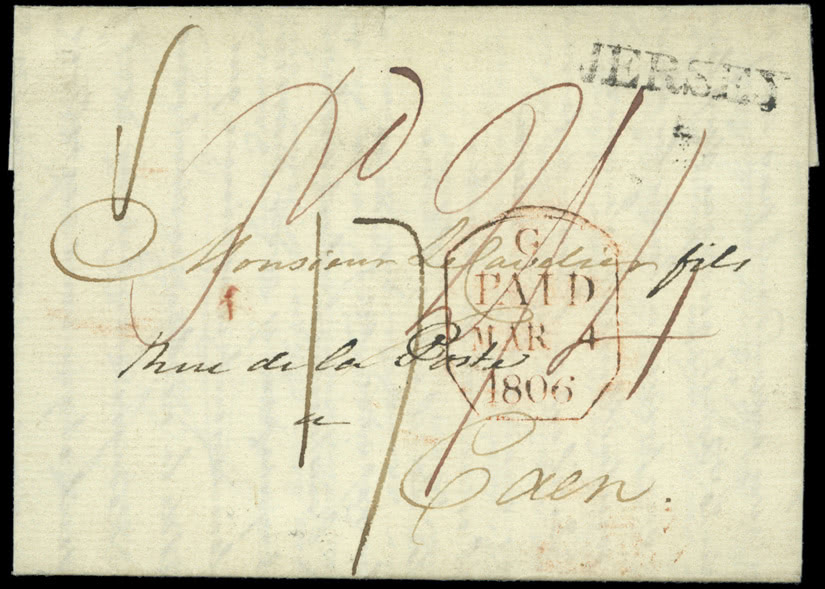 JERSEY
Monsieur fils
Rue de la Poste
a
Caen.
C
PAID
MAR 4
1806
17